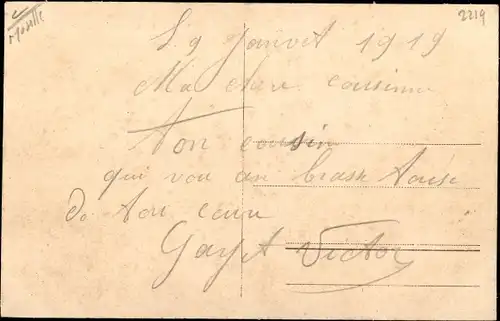 Moselle
2219
L 9 Janvet 1919
Ma chere cousinne
Ton cousin
qui vou an brasse
De ton cœur
Gayet Victor